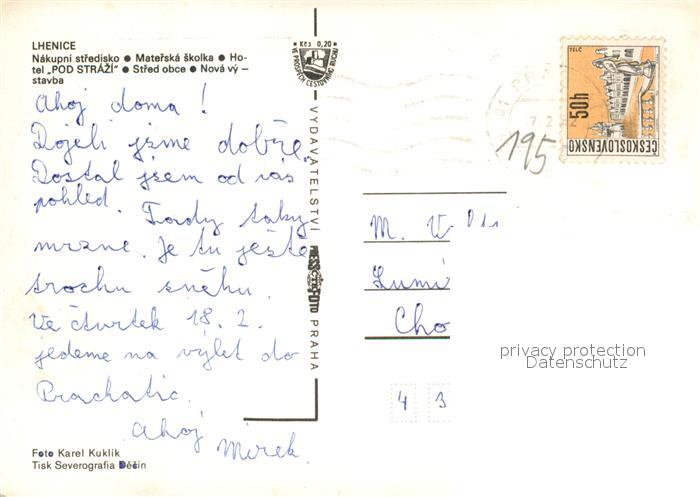 LHENICE
Nákupní středisko ● Mateřská školka ● Ho-
tel „POD STRÁŽÍ" ● Střed obce ● Nová vý –
stavba
Ahoj doma!
Dojeli jsme dobře.
Dostal jsem od vás
pohled. Tady taky
mrzne. Je tu ještě
trochu sněhu.
Ve čtvrtek 18. 2.
jedeme na výlet do
Prachatic.
Ahoj
Mirek.
Foto Karel Kuklík
Tisk Severografia Děčín
Kčs 0,20
VE PROSPĚCH CESTOVNÍHO RUCHU
VYDAVATELSTVÍ
PRESSFOTO
PRAHA
TELČ
50h
ČESKOSLOVENSKO
195
M. V
Lumí
Cho
4 3
privacy protection
Datenschutz